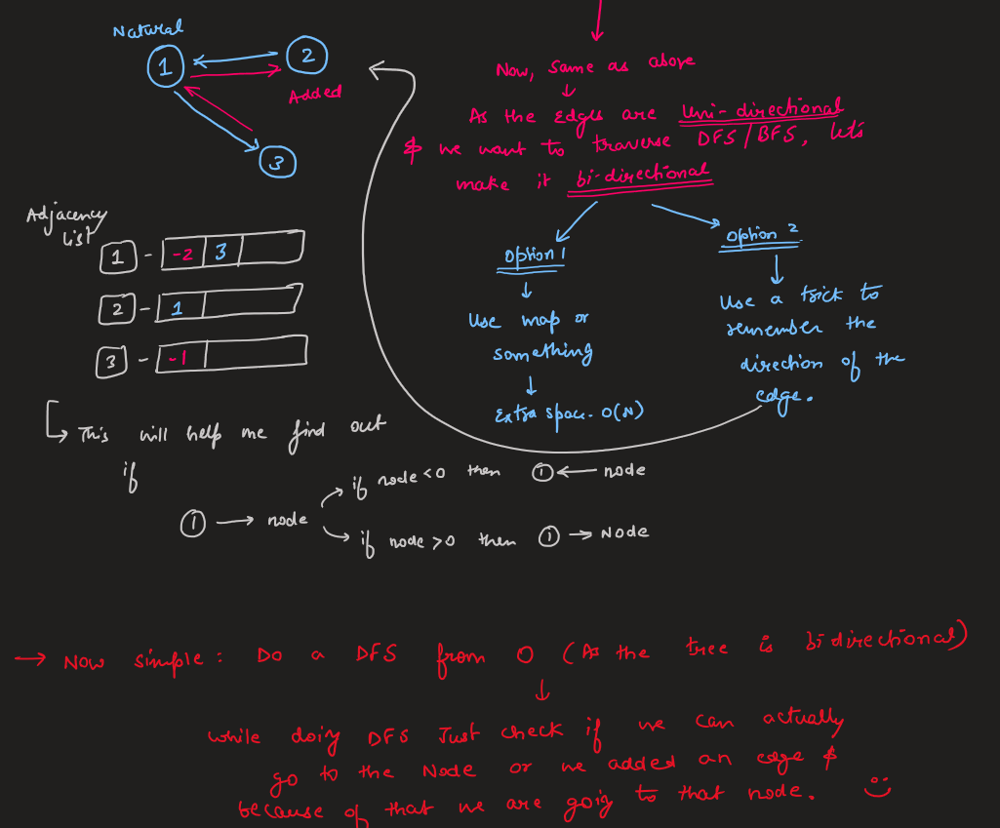 Natural
1
2
Added
3
Now, Same as above
As the Edges are Uni-directional
& we want to traverse DFS/BFS, lets
make it bi-directional
Adjacency
List
1 - -2 3
2 - 1
3 - -1
Option 1
Use map or
something
Extra space. O(N)
Option 2
Use a trick to
remember the
direction of the
edge.
This will help me find out
if
1 → node
if node <0 then 1 ← node
if node >0 then 1 → Node
→ Now simple: Do a DFS from 0 (As the tree is bidirectional)
while doing DFS Just check if we can actually
go to the Node or we added an edge &
because of that we are goig to that node. :)